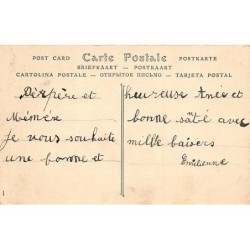 POST CARD Carte Postale POSTKARTE
BRIEFKAART — POSTKAART
CARTOLINA POSTALE — ОТКРЫТОЕ ПИСЬМО — TARJETA POSTAL
Pépère et
Mémère
je vous souhaite
une bonne et
heureuse Anée et
bonne santé avec
mille baisers
Emilienne